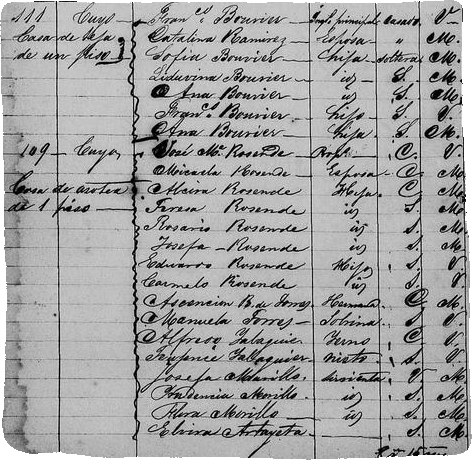 111 — Cuyo — Franco Bouvier — Empdo principal casado V.
Casa de teja Catalina Ramirez — Esposa " M.
de un piso Sofia Bouvier — Hija soltera M.
Liduvina Bouvier — id S. M.
Ana Bouvier — id S. M.
Franco Bouvier — hijo S. V.
Ana Bouvier — hija S. M.
109 — Cuyo José Ma. Rosende — C. V.
Micaela Rosende — Esposa C. M.
Casa de azotea Maira Rosende Hija C. M.
de 1 piso — Teresa Rosende id S. M.
Rosario Rosende id S. M.
Josefa — Rosende id S. M.
Eduardo Rosende Hijo S. V.
Carmelo Rosende id S. V.
Ascencion R. de Torres. Hermana C. M.
Manuela Torres — Sobrina S. V.
Alfredo Yerno C. V.
nieto S. V.
Josefa Morillo. sirvienta V. M
Prudencia Morillo. id S. M
Flora Morillo — id S. M
Elvira Artayeta — S. M